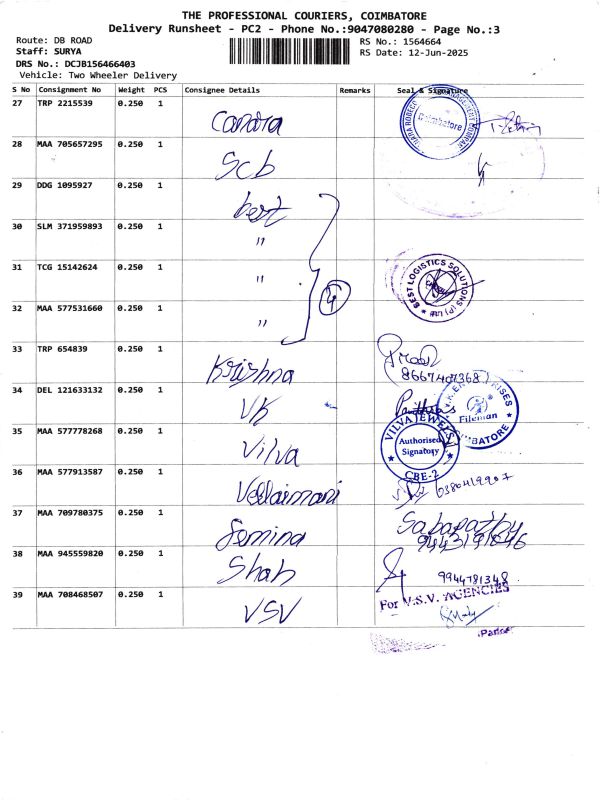 THE PROFESSIONAL COURIERS, COIMBATORE
Delivery Runsheet - PC2 - Phone No.:9047080280 - Page No.:3
Route: DB ROAD
Staff: SURYA
DRS No.: DCJB156466403
Vehicle: Two Wheeler Delivery
RS No.: 1564664
RS Date: 12-Jun-2025
S No Consignment No Weight PCS Consignee Details Remarks Seal & Signature
27 TRP 2215539 0.250 1 Canara Coimbatore
28 MAA 705657295 0.250 1 Scb
29 DDG 1095927 0.250 1 best
30 SLM 371959893 0.250 1 "
31 TCG 15142624 0.250 1 " 4 BEST LOGISTICS SOLUTIONS (P) Ltd
32 MAA 577531660 0.250 1 "
33 TRP 654839 0.250 1 Krishna 8667407368
34 DEL 121633132 0.250 1 VK Fileman COIMBATORE
35 MAA 577778268 0.250 1 Vilva VILVA JEWELS Authorised Signatory CBE-2
36 MAA 577913587 0.250 1 Vellaimani
37 MAA 709780375 0.250 1 Femina Sabapathy
38 MAA 945559820 0.250 1 Shah 9944781348
39 MAA 708468507 0.250 1 VSV For V.S.V. AGENCIES